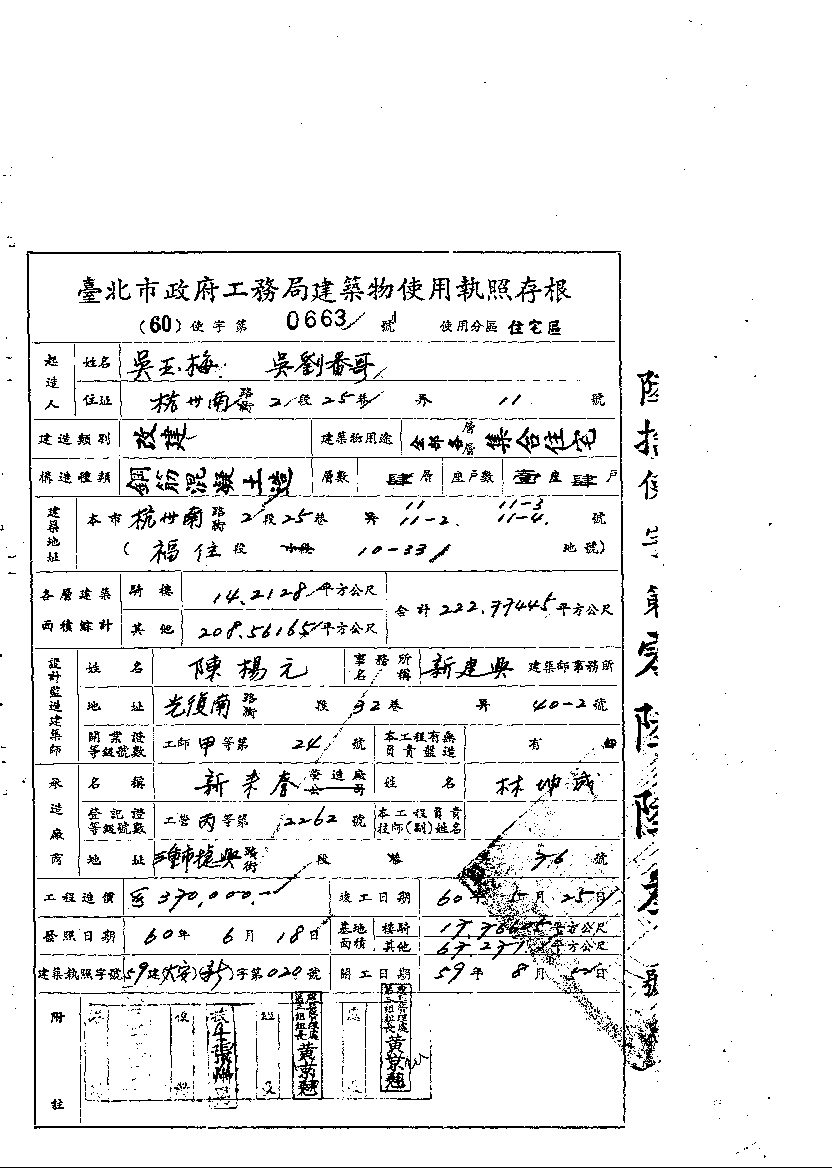 臺北市政府工務局建築物使用執照存根
(60)使字第 0663 號 使用分區 住宅區
起造人 姓名 吳王梅 吳劉番哥
住址 杭州南路 2段 25巷 弄 11 號
建造類別 改建 建築物用途 全部各層 集合住宅
構造種類 鋼筋混凝土造 層數 肆層 座戶數 壹座肆戶
建築地址 本市杭州南路街 2段25巷 弄 11 11-2. 11-3 11-4. 號
(福住段 小段 10-33 地號)
各層建築面積綜計 騎樓 14.2128 平方公尺 合計 222.77445 平方公尺
其他 208.56165 平方公尺
設計監造建築師 姓名 陳楊元 事務所名稱 新建興 建築師事務所
地址 光復南路街 段 32巷 弄 40-2號
開業證等級號數 工師甲等第 24 號 本工程有無負責監造 有
承造廠商 名稱 新來泰 營造廠公司 姓名 林坤成
登記證等級號數 工營丙等第 2262 號 本工程負責技師(副)姓名
地址 三重市捷興路街 段 巷 36 號
工程造價 370,000.- 竣工日期 60年 月 25日
發照日期 60年 6月 18日 基地面積 騎樓 平方公尺
其他 平方公尺
建築執照字號 59建( )字第020號 開工日期 59年 8月 日
附註
黃京 黃京
陸拾使字第零陸陸叁號